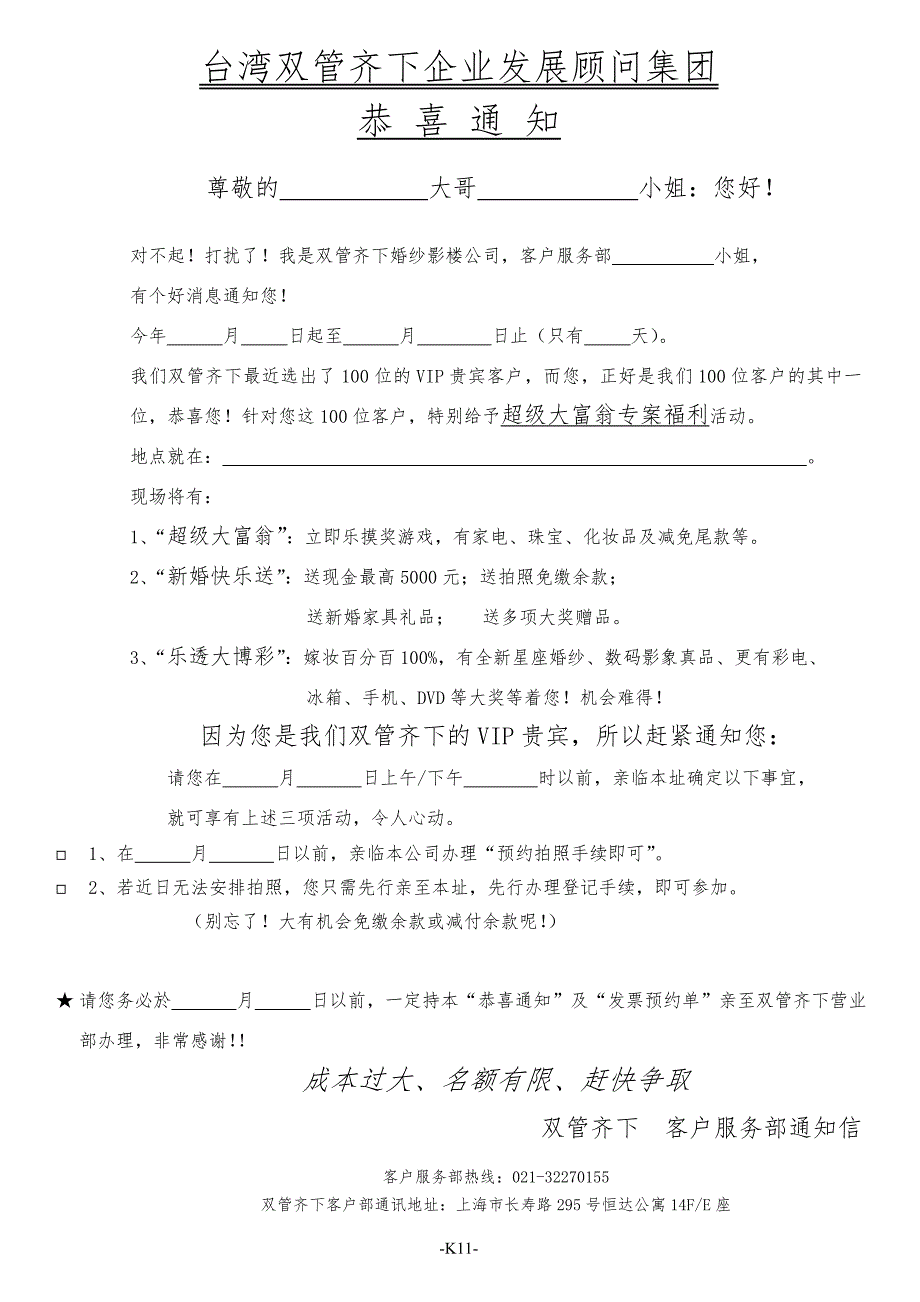 台湾双管齐下企业发展顾问集团
恭 喜 通 知
尊敬的____________大哥_____________小姐：您好！
对不起！打扰了！我是双管齐下婚纱影楼公司，客户服务部___________小姐，
有个好消息通知您！
今年______月_____日起至______月________日止（只有_____天）。
我们双管齐下最近选出了 100 位的 VIP 贵宾客户，而您，正好是我们 100 位客户的其中一
位，恭喜您！针对您这 100 位客户，特别给予超级大富翁专案福利活动。
地点就在：_______________________________________________________________。
现场将有：
1、“超级大富翁”：立即乐摸奖游戏，有家电、珠宝、化妆品及减免尾款等。
2、“新婚快乐送”：送现金最高 5000 元；送拍照免缴余款；
送新婚家具礼品； 送多项大奖赠品。
3、“乐透大博彩”：嫁妆百分百 100%，有全新星座婚纱、数码影象真品、更有彩电、
冰箱、手机、DVD 等大奖等着您！机会难得！
因为您是我们双管齐下的 VIP 贵宾，所以赶紧通知您：
请您在______月_________日上午/下午________时以前，亲临本址确定以下事宜，
就可享有上述三项活动，令人心动。
□ 1、在______月_______日以前，亲临本公司办理“预约拍照手续即可”。
□ 2、若近日无法安排拍照，您只需先行亲至本址，先行办理登记手续，即可参加。
（别忘了！大有机会免缴余款或减付余款呢！）
★ 请您务必於_______月______日以前，一定持本“恭喜通知”及“发票预约单”亲至双管齐下营业
部办理，非常感谢！！
成本过大、名额有限、赶快争取
双管齐下 客户服务部通知信
客户服务部热线：021-32270155
双管齐下客户部通讯地址：上海市长寿路 295 号恒达公寓 14F/E 座
-K11-